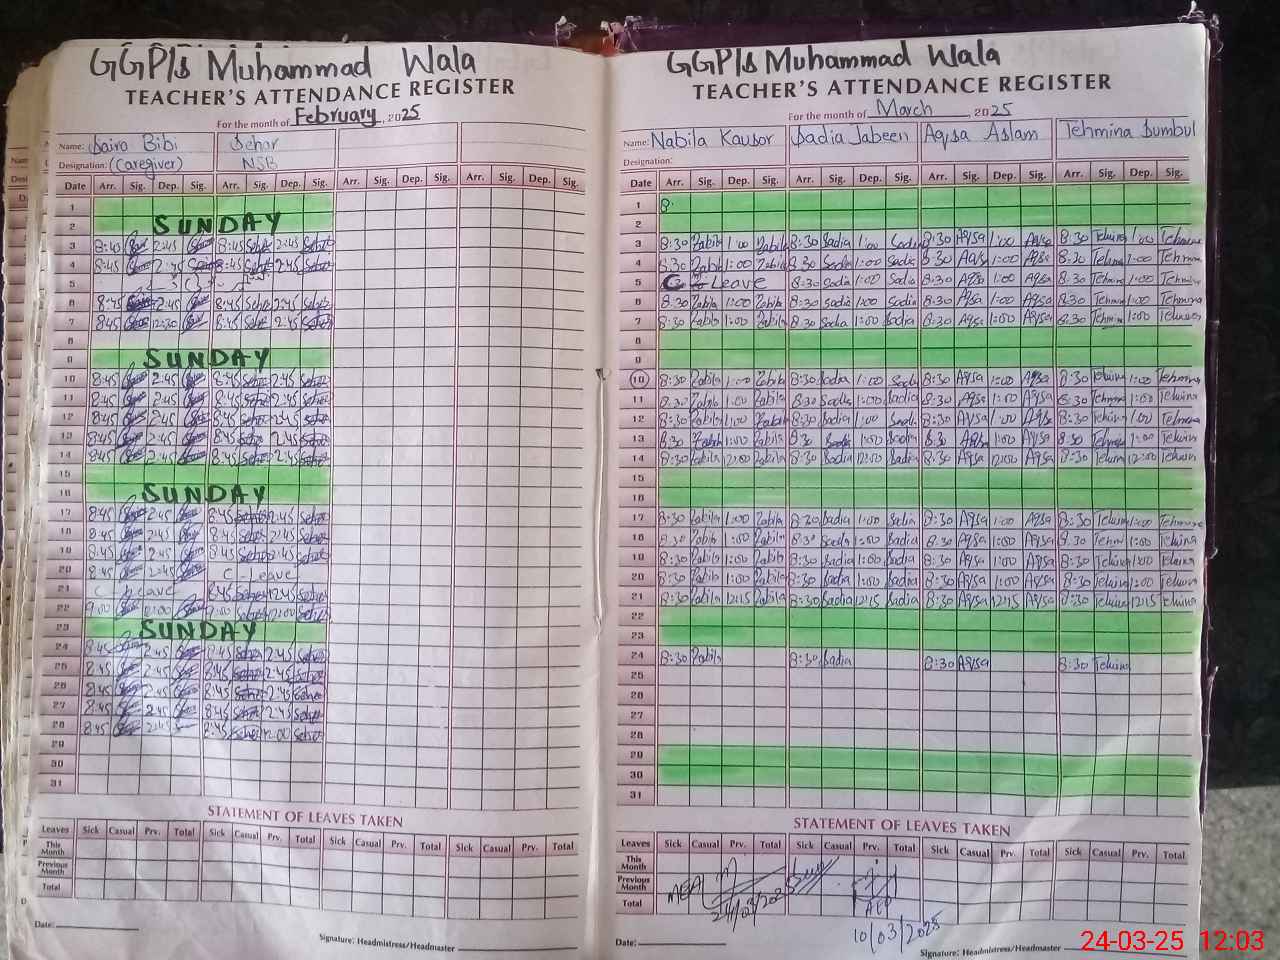 GGP/s Muhammad Wala
TEACHER'S ATTENDANCE REGISTER
For the month of February, 2025
Name: Saira Bibi Sehar
Designation: (Caregiver) NSB
Date Arr. Sig. Dep. Sig. Arr. Sig. Dep. Sig. Arr. Sig. Dep. Sig. Arr. Sig. Dep. Sig.
1
2 SUNDAY
3 8:45 2:45 8:45 2:45
4 8:45 2:45 8:45 2:45
5
6 8:45 2:45 8:45 2:45
7 8:45 12:30 8:45 2:45
8
9 SUNDAY
10 8:45 2:45 8:45 2:45
11 8:45 2:45 8:45 2:45
12 8:45 2:45 8:45 2:45
13 8:45 2:45 8:45 2:45
14 8:45 2:45 8:45 2:45
15
16 SUNDAY
17 8:45 2:45 8:45 2:45
18 8:45 2:45 8:45 2:45
19 8:45 2:45 8:45 2:45
20 8:45 2:45 C-Leave
21 C-Leave 8:45 2:45
22 9:00 12:00 9:00 12:00
23 SUNDAY
24 8:45 2:45 8:45 2:45
25 8:45 2:45 8:45 2:45
26 8:45 2:45 8:45 2:45
27 8:45 2:45 8:45 2:45
28 8:45 2:45 8:45
29
30
31
STATEMENT OF LEAVES TAKEN
Leaves Sick Casual Prv. Total Sick Casual Prv. Total Sick Casual Prv. Total Sick Casual Prv. Total
This Month
Previous Month
Total
Date:
Signature: Headmistress/Headmaster
GGP/s Muhammad Wala
TEACHER'S ATTENDANCE REGISTER
For the month of March, 2025
Name: Nabila Kausor Sadia Jabeen Aqsa Aslam Tehmina Sumbul
Designation:
Date Arr. Sig. Dep. Sig. Arr. Sig. Dep. Sig. Arr. Sig. Dep. Sig. Arr. Sig. Dep. Sig.
1 8
2
3 8:30 Nabila 1:00 Nabila 8:30 Sadia 1:00 Sadia 8:30 Aqsa 1:00 Aqsa 8:30 Tehmina 1:00 Tehmina
4 8:30 Nabila 1:00 Nabila 8:30 Sadia 1:00 Sadia 8:30 Aqsa 1:00 Aqsa 8:30 Tehmina 1:00 Tehmina
5 C Leave 8:30 Sadia 1:00 Sadia 8:30 Aqsa 1:00 Aqsa 8:30 Tehmina 1:00 Tehmina
6 8:30 Nabila 1:00 Nabila 8:30 Sadia 1:00 Sadia 8:30 Aqsa 1:00 Aqsa 8:30 Tehmina 1:00 Tehmina
7 8:30 Nabila 1:00 Nabila 8:30 Sadia 1:00 Sadia 8:30 Aqsa 1:00 Aqsa 8:30 Tehmina 1:00 Tehmina
8
9
10 8:30 Nabila 1:00 Nabila 8:30 Sadia 1:00 Sadia 8:30 Aqsa 1:00 Aqsa 8:30 Tehmina 1:00 Tehmina
11 8:30 Nabila 1:00 Nabila 8:30 Sadia 1:00 Sadia 8:30 Aqsa 1:00 Aqsa 8:30 Tehmina 1:00 Tehmina
12 8:30 Nabila 1:00 Nabila 8:30 Sadia 1:00 Sadia 8:30 Aqsa 1:00 Aqsa 8:30 Tehmina 1:00 Tehmina
13 8:30 Nabila 1:00 Nabila 8:30 Sadia 1:00 Sadia 8:30 Aqsa 1:00 Aqsa 8:30 Tehmina 1:00 Tehmina
14 8:30 Nabila 12:00 Nabila 8:30 Sadia 12:00 Sadia 8:30 Aqsa 12:00 Aqsa 8:30 Tehmina 12:00 Tehmina
15
16
17 8:30 Nabila 1:00 Nabila 8:30 Sadia 1:00 Sadia 8:30 Aqsa 1:00 Aqsa 8:30 Tehmina 1:00 Tehmina
18 8:30 Nabila 1:00 Nabila 8:30 Sadia 1:00 Sadia 8:30 Aqsa 1:00 Aqsa 8:30 Tehmina 1:00 Tehmina
19 8:30 Nabila 1:00 Nabila 8:30 Sadia 1:00 Sadia 8:30 Aqsa 1:00 Aqsa 8:30 Tehmina 1:00 Tehmina
20 8:30 Nabila 1:00 Nabila 8:30 Sadia 1:00 Sadia 8:30 Aqsa 1:00 Aqsa 8:30 Tehmina 1:00 Tehmina
21 8:30 Nabila 12:15 Nabila 8:30 Sadia 12:15 Sadia 8:30 Aqsa 12:15 Aqsa 8:30 Tehmina 12:15 Tehmina
22
23
24 8:30 Nabila 8:30 Sadia 8:30 Aqsa 8:30 Tehmina
25
26
27
28
29
30
31
STATEMENT OF LEAVES TAKEN
Leaves Sick Casual Prv. Total Sick Casual Prv. Total Sick Casual Prv. Total Sick Casual Prv. Total
This Month
Previous Month
Total
MEA
24/03/2025
AEO
10/03/2025
Date:
Signature: Headmistress/Headmaster
24-03-25 12:03